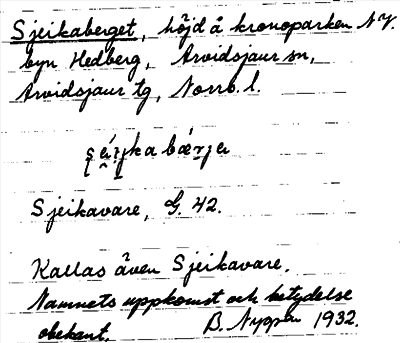 Sjeikaberget, höjd å kronoparken NV.
byn Hedberg, Arvidsjaur sn,
Arvidsjaur tg, Norrb. l.
Sjeikavare, G. 42.
Kallas även Sjeikavare.
Namnets uppkomst och betydelse
obekant. B. Nygren 1932.